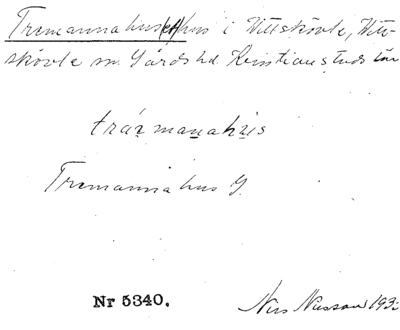 Tremannahus(et) hus i Vittskövle, Vitt-
skövle sn. Gärds hd. Kristianstads län
trármanahus
Tremannahus G
Nr 5340.
Nils Nilsson 193